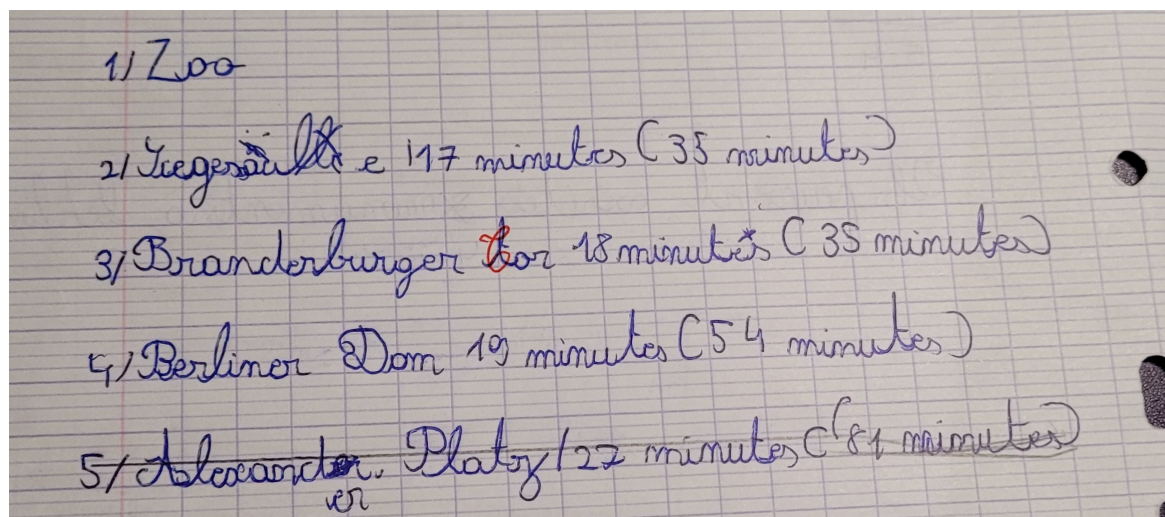 1) Zoo
2) Siegesäule 17 minutes (35 minutes)
3) Branderburger Tor 18 minutes (35 minutes)
4) Berliner Dom 19 minutes (54 minutes)
5) Alexander Platz 27 minutes (81 minutes)
er